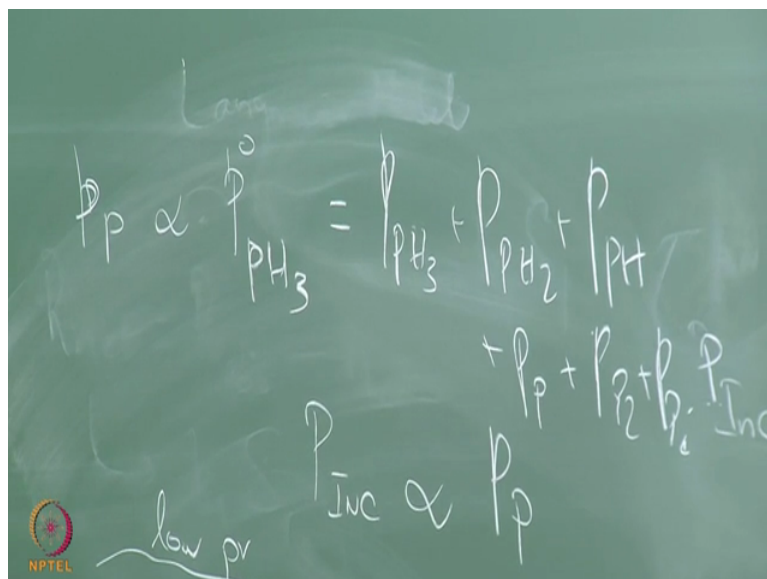 P_P ∝ P°_PH3 = P_PH3 + P_PH2 + P_PH
+ P_P + P_P2 + P_Pi P_Inc
P_INC ∝ P_P
low pr
NPTEL